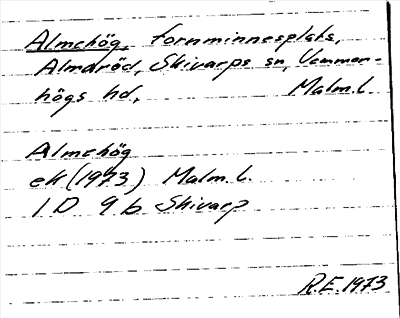 Almehög, fornminnesplats,
Almdröd, Skivarps sn, Vemmen-
högs hd, Malm.l.
Almehög
ek (1973) Malm.l.
1 D 9 b Skivarp
R.E. 1973